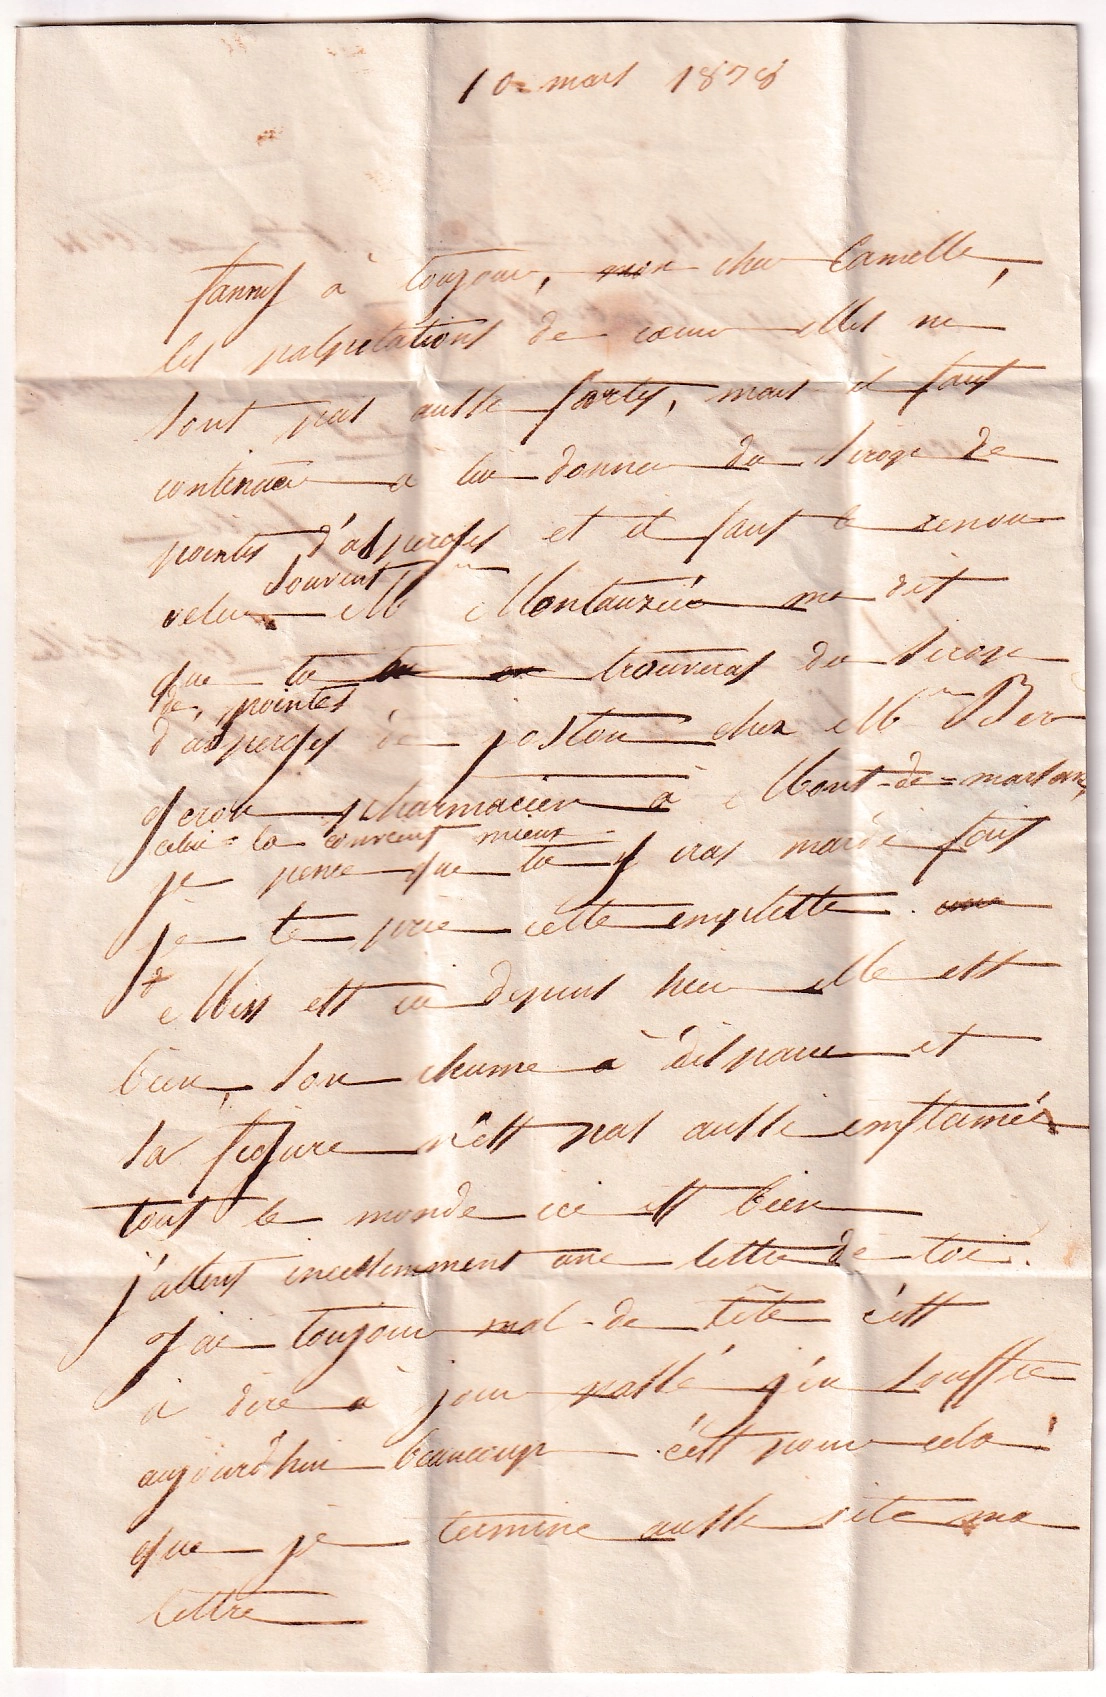 10 mars 1878
fanny à toujour, mon cher Camille,
les palpitations de cœur elles ne
sont pas aussi fortes, mais il faut
continuer a lui donner du sirop de
pointes d'asperges et il faut le renou
souvent
veler Mr Montauzié ma dit
que tu trouveras du sirop
de pointes
d'asperges de joston chez Mr Ber
geron pharmacien à Mont-de-marsan,
celui-la convient mieux
je pense que tu y iras mardi fais
je te prie cette emplette.
Miss est ici depuis hier elle est
bien, son rhume a disparu et
sa figure n'est pas aussi emflamée
tout le monde ici est bien
j'attens incessemment une lettre de toi.
J'ai toujour mal-de tête c'est
a dire a jour passé j'en souffre
aujourd'hui beaucoup c'est pour cela
que je termine aussi vite ma
lettre